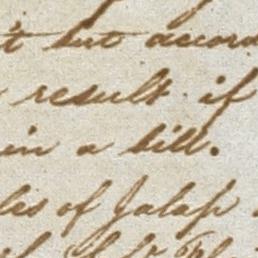 't but accord
result if
in a bill.
les of Jalap